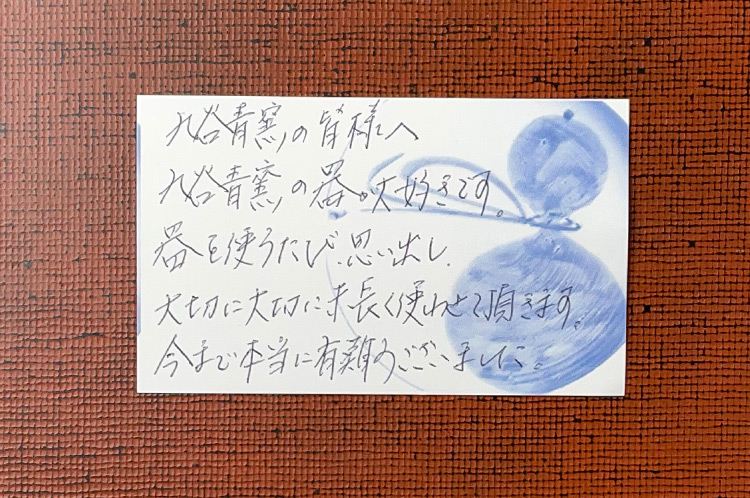 九谷青窯の皆様へ
九谷青窯の器が大好きです。
器を使うたび、思い出し、
大切に大切に末長く使わせて頂きます。
今まで本当に有難うございました。